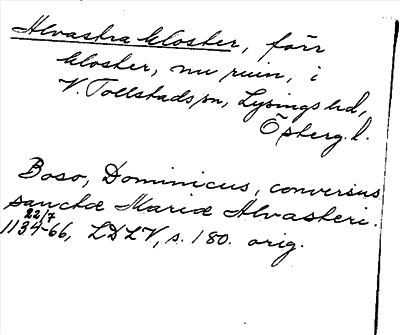 Alvastra kloster, förr
kloster, nu ruin, i
V. Tollstads sn, Lysings hd,
Österg. l.
Boso, Dominicus, conversus
sanctæ Mariæ Alvasteri.
22/7
1134-66, LDLV, s. 180. orig.